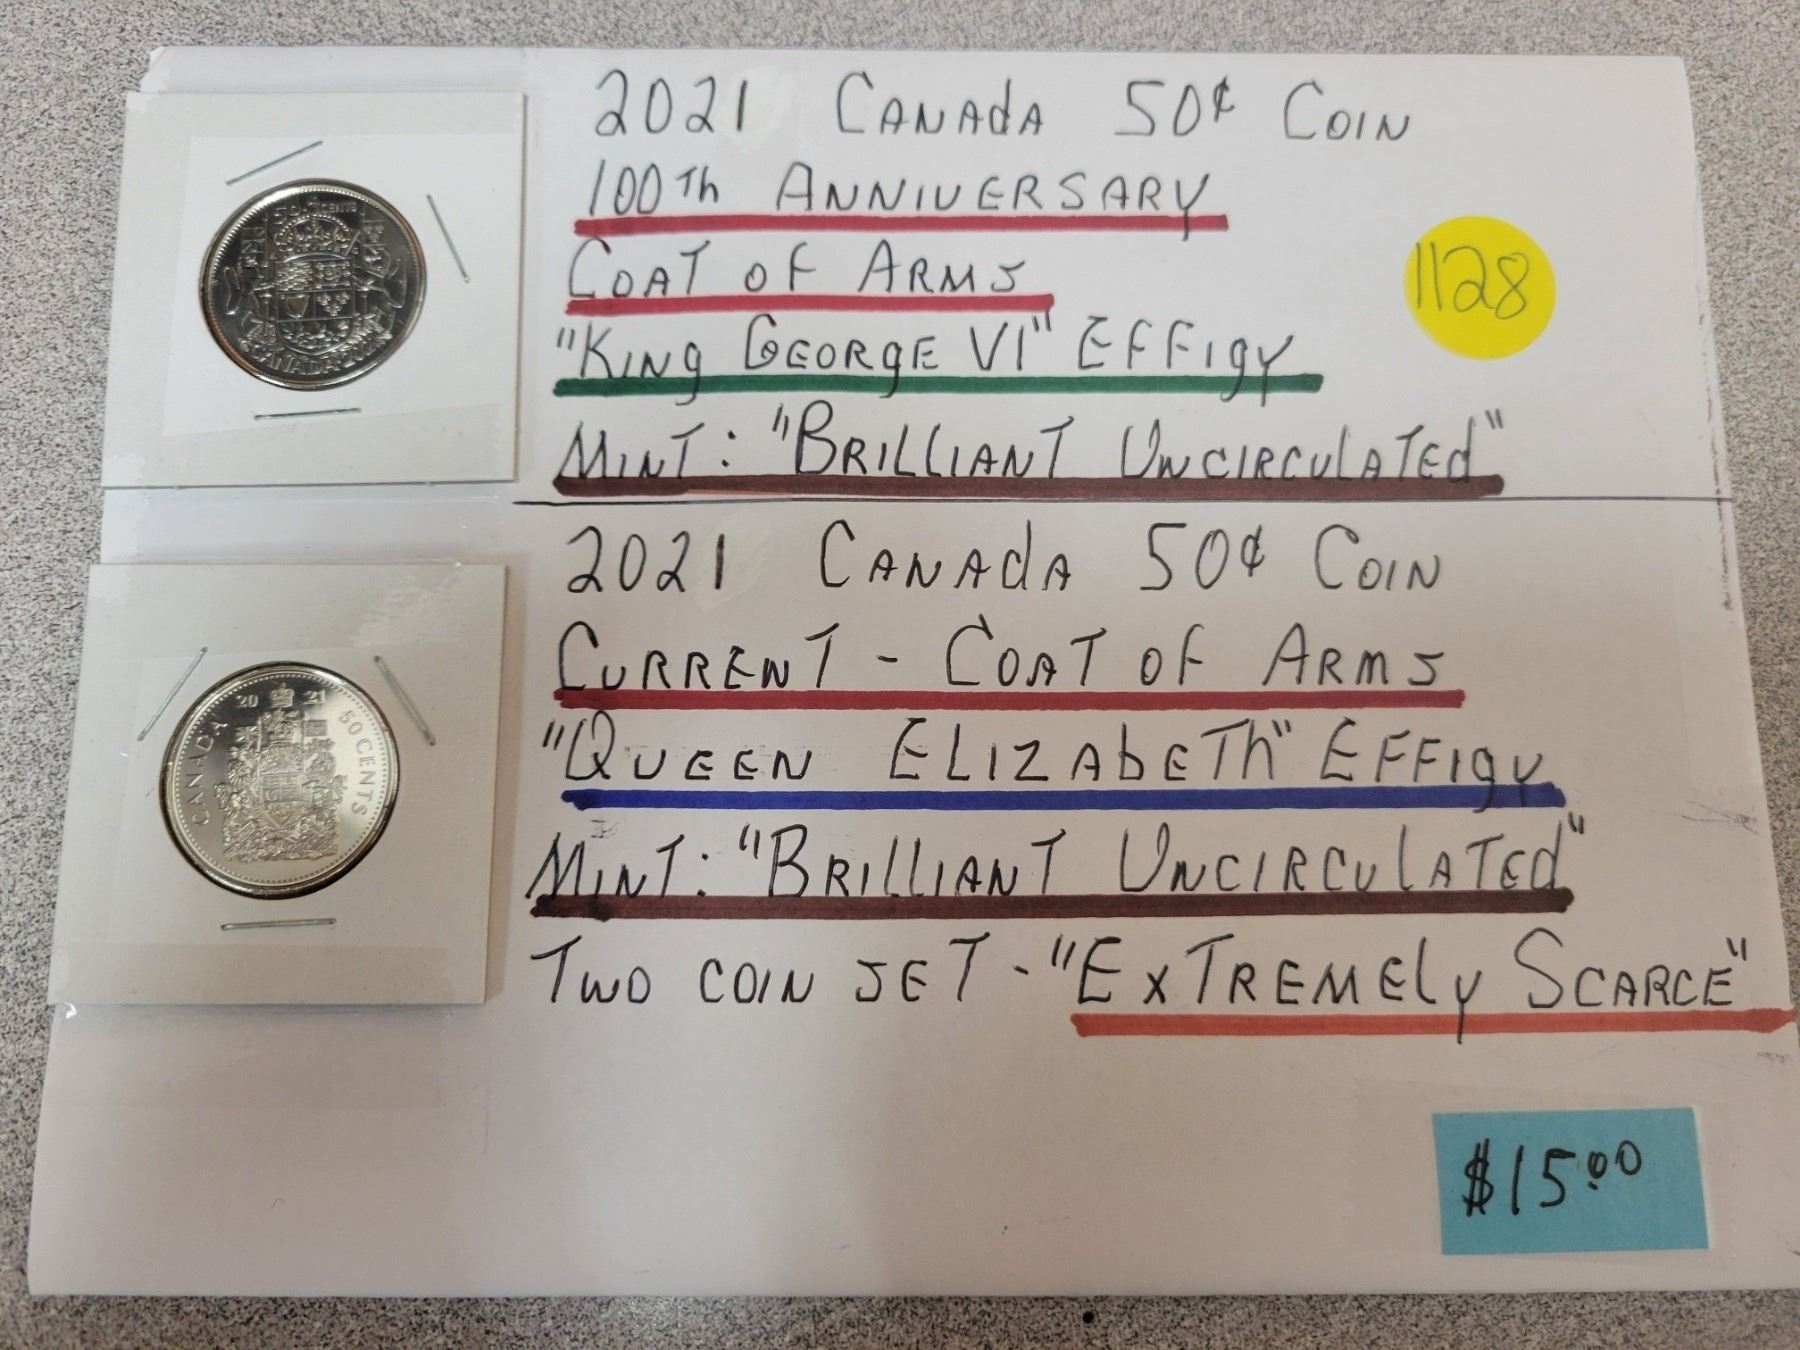 2021 CANADA 50¢ COIN
100Th ANNIVERSARY
COAT OF ARMS
"KING GEORGE VI" EFFIGY
MINT: "BRILLIANT UNCIRCULATED"
1128
50 Cents
CANADA 2021
2021 CANADA 50¢ COIN
CURRENT - COAT OF ARMS
"QUEEN ELIZABETH" EFFIGY
MINT: "BRILLIANT UNCIRCULATED"
TWO COIN SET - "EXTREMELY SCARCE"
CANADA 20 21 50 CENTS
$15.00